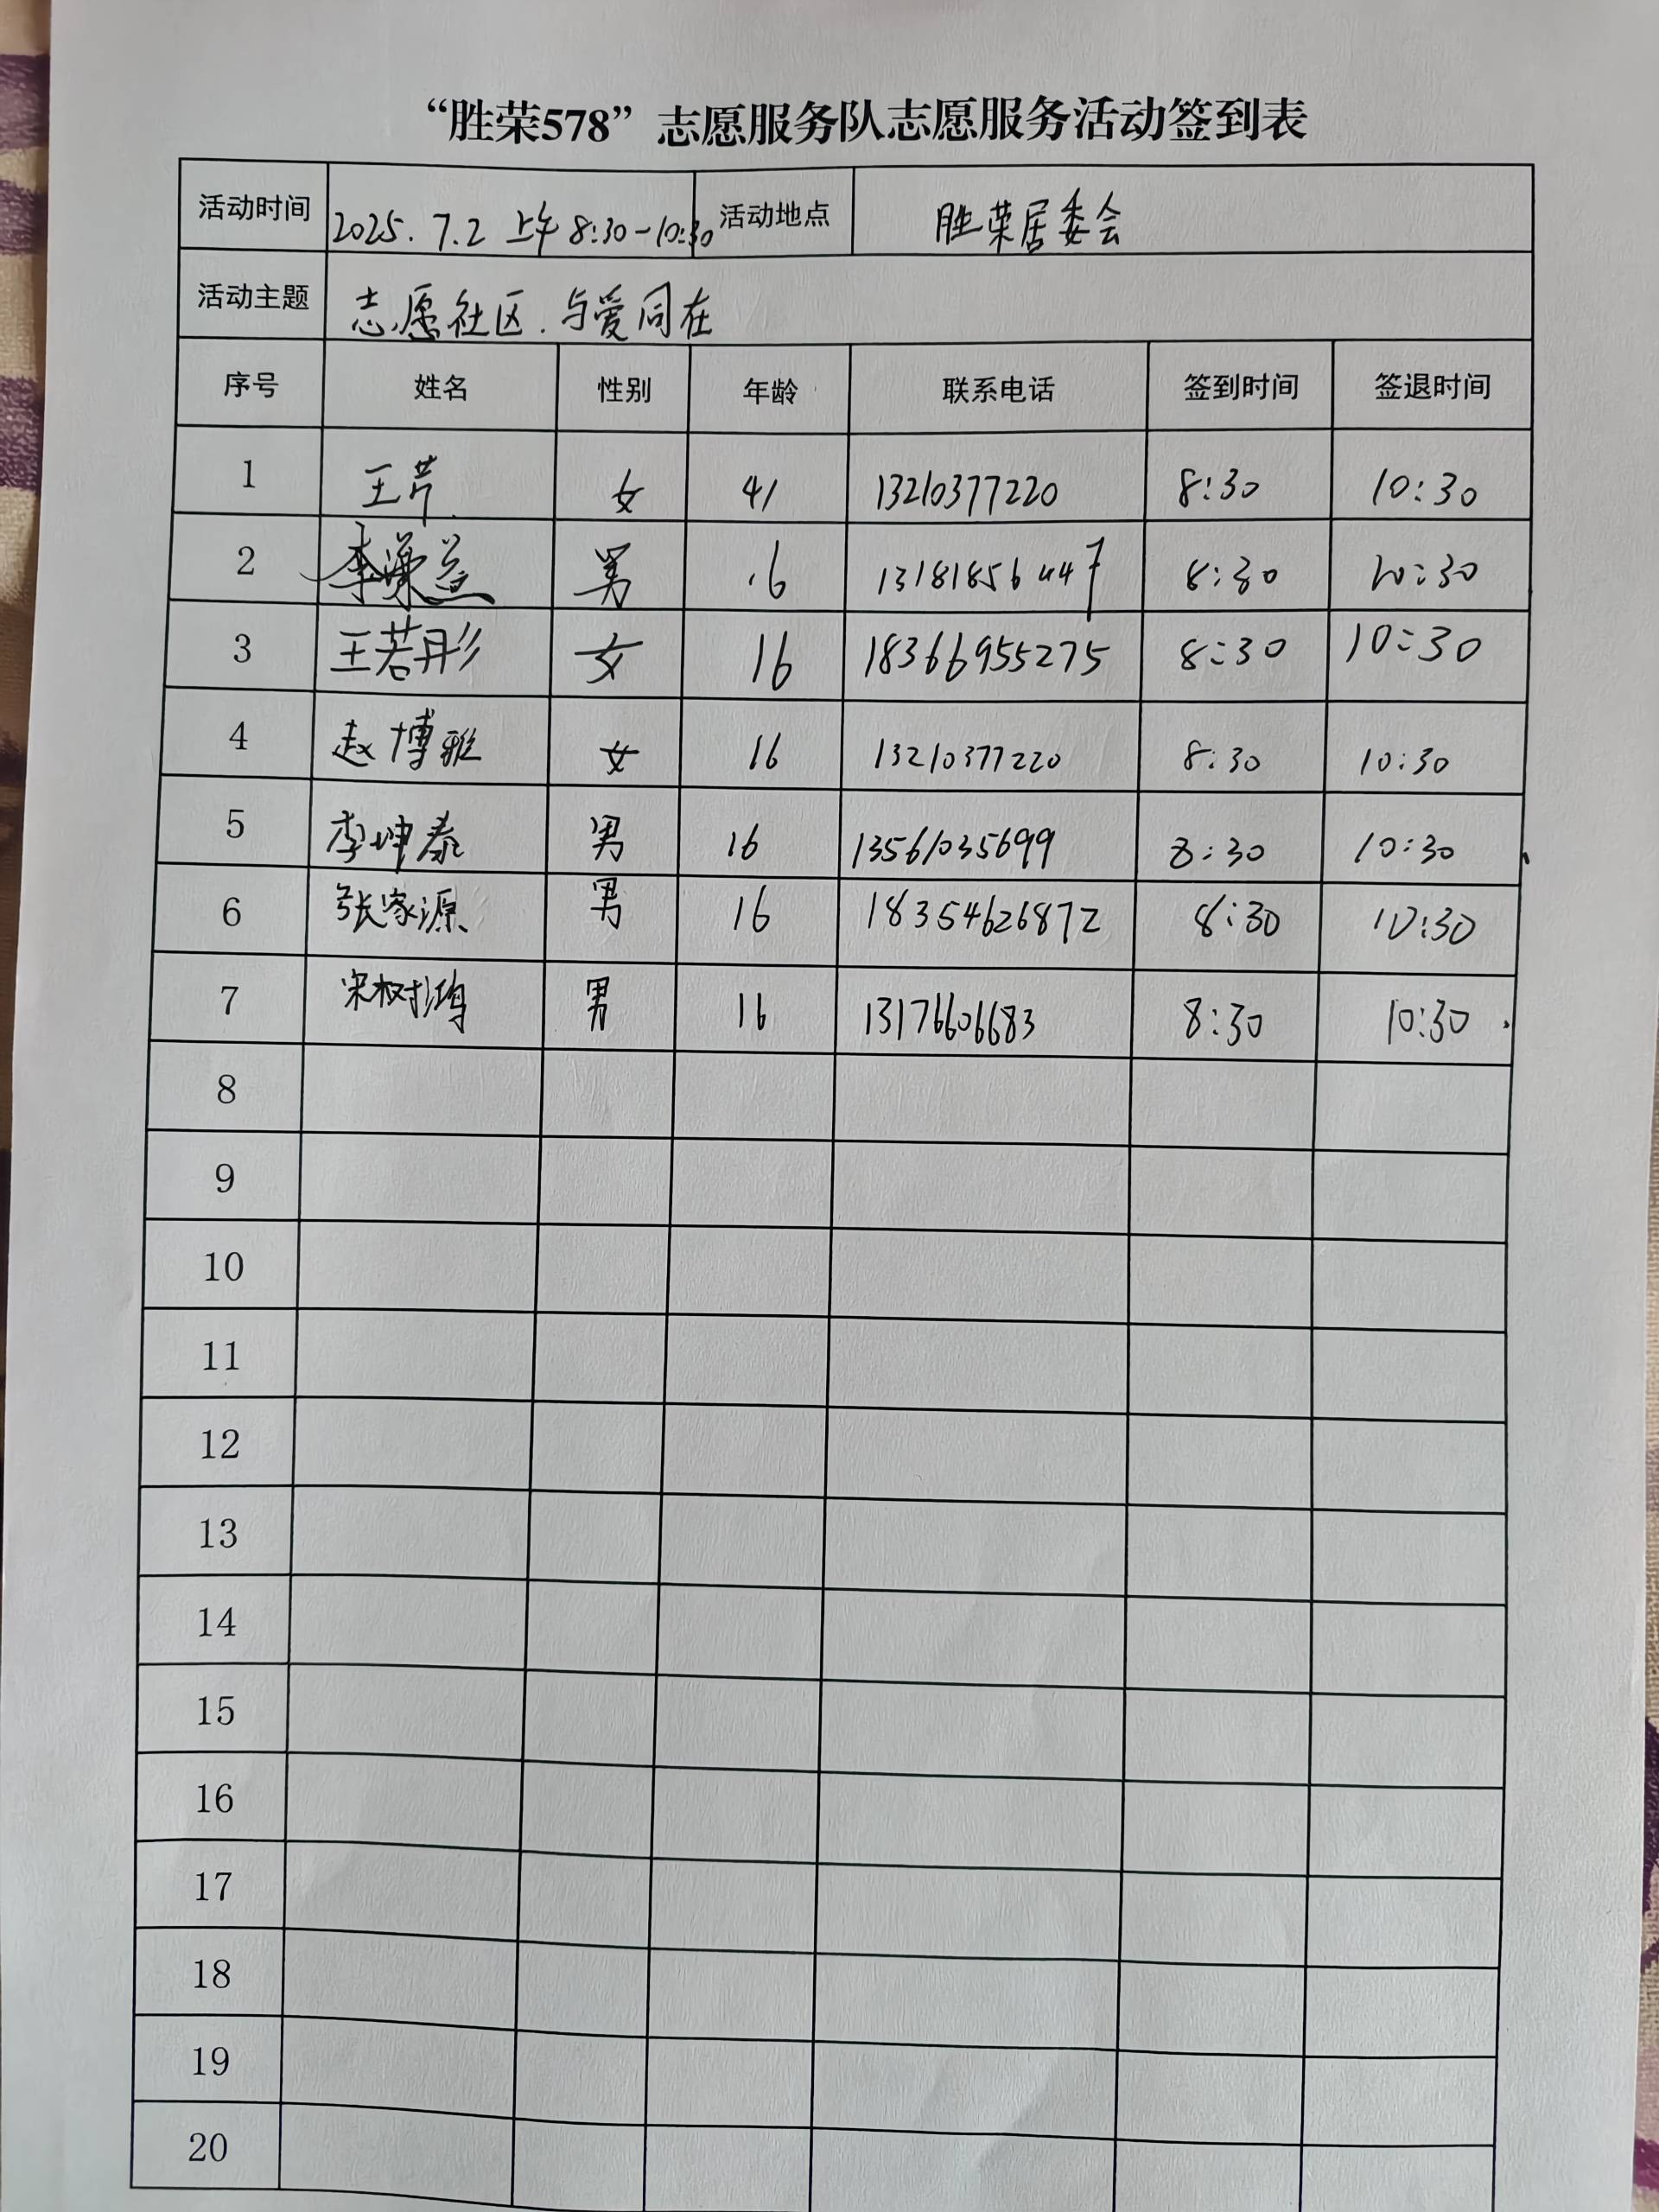 “胜荣578”志愿服务队志愿服务活动签到表
活动时间 2025.7.2 上午 8:30-10:30 活动地点 胜荣居委会
活动主题 志愿社区.与爱同在
序号 姓名 性别 年龄 联系电话 签到时间 签退时间
1 王芹 女 41 13210377220 8:30 10:30
2 李 男 16 13181856447 8:30 10:30
3 王若彤 女 16 18366955275 8:30 10:30
4 赵博雅 女 16 13210377220 8:30 10:30
5 李坤泰 男 16 13561035699 8:30 10:30
6 张家源 男 16 18354626872 8:30 10:30
7 宋树鸿 男 16 13176606683 8:30 10:30
8
9
10
11
12
13
14
15
16
17
18
19
20